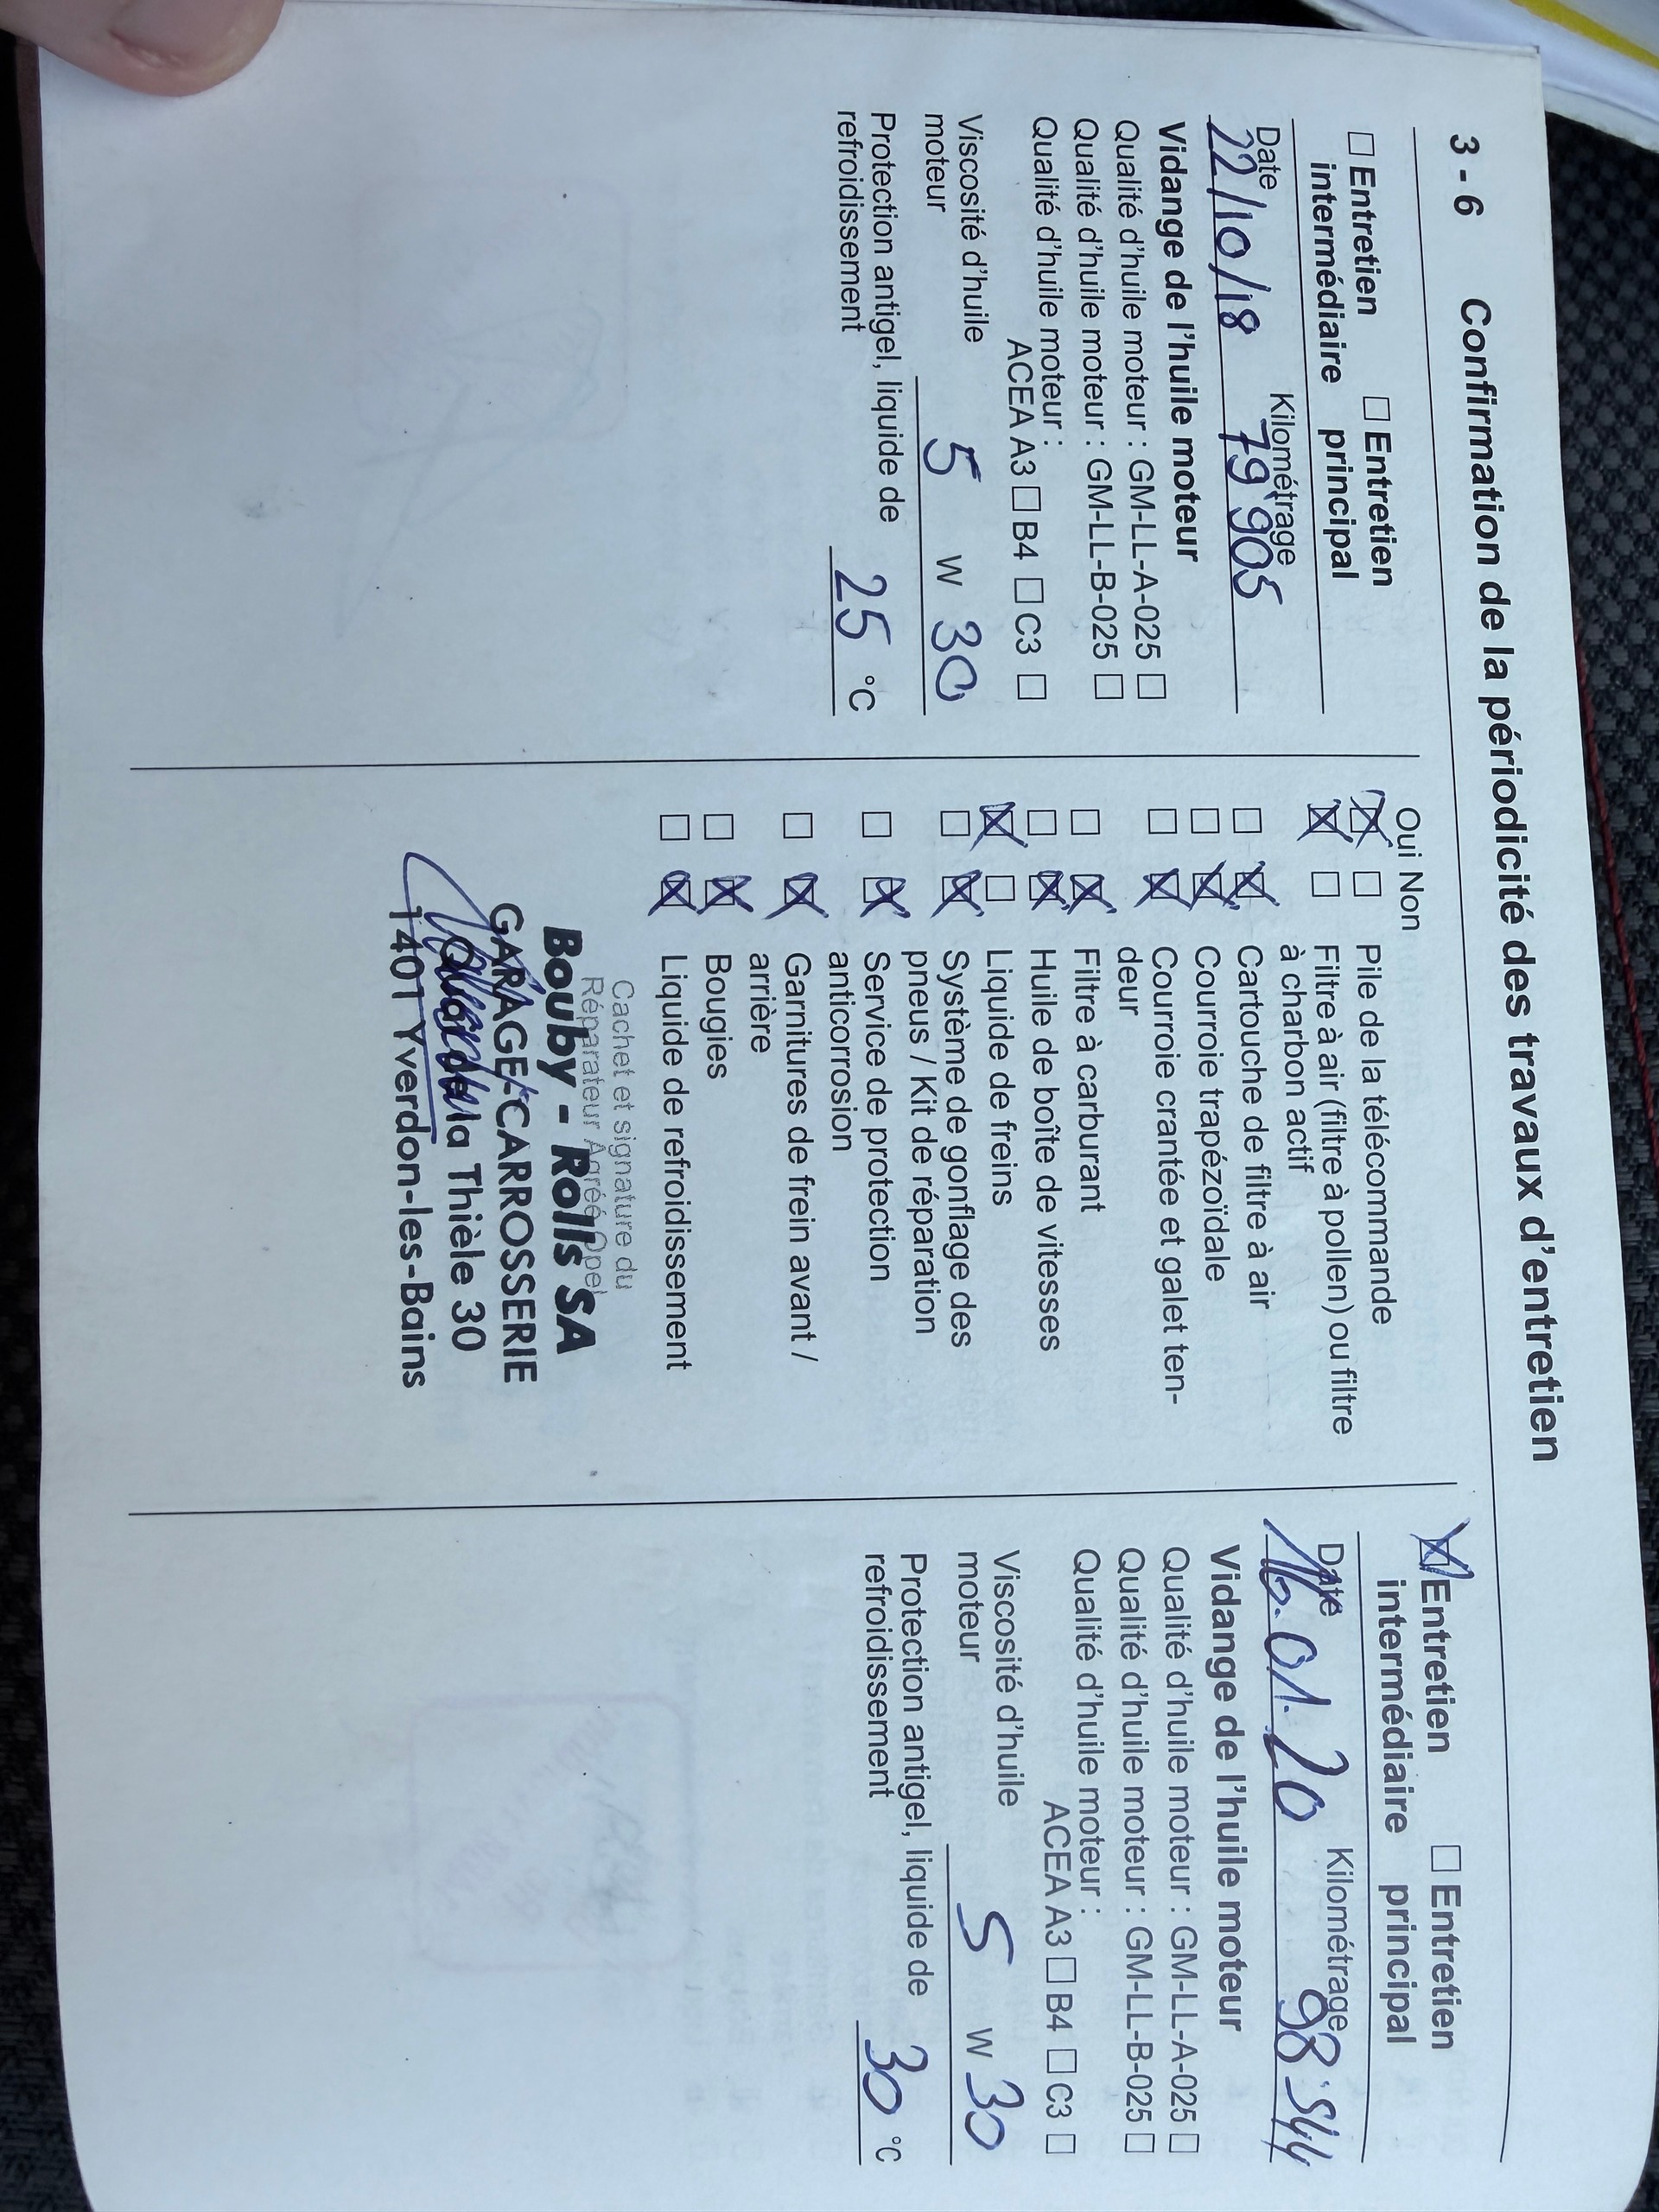 3 - 6 Confirmation de la périodicité des travaux d'entretien
☐ Entretien intermédiaire ☐ Entretien principal
Date Kilométrage
22/10/18 79'905
Vidange de l'huile moteur
Qualité d'huile moteur : GM-LL-A-025 ☐
Qualité d'huile moteur : GM-LL-B-025 ☐
Qualité d'huile moteur :
ACEA A3 ☐ B4 ☐ C3 ☐
Viscosité d'huile
moteur 5 W 30
Protection antigel, liquide de
refroidissement 25 °C
Oui Non
☒ ☐ Pile de la télécommande
☒ ☐ Filtre à air (filtre à pollen) ou filtre
à charbon actif
☐ ☒ Cartouche de filtre à air
☐ ☒ Courroie trapézoïdale
☐ ☒ Courroie crantée et galet ten-
deur
☐ ☒ Filtre à carburant
☐ ☒ Huile de boîte de vitesses
☒ ☐ Liquide de freins
☐ ☒ Système de gonflage des
pneus / Kit de réparation
☐ ☒ Service de protection
anticorrosion
☐ ☒ Garnitures de frein avant /
arrière
☐ ☒ Bougies
☐ ☒ Liquide de refroidissement
Cachet et signature du
Réparateur Agréé Opel
Bouby - Rolls SA
GARAGE-CARROSSERIE
la Thièle 30
1401 Yverdon-les-Bains
☒ Entretien intermédiaire ☐ Entretien principal
Date Kilométrage
16.01.20 98'544
Vidange de l'huile moteur
Qualité d'huile moteur : GM-LL-A-025 ☐
Qualité d'huile moteur : GM-LL-B-025 ☐
Qualité d'huile moteur :
ACEA A3 ☐ B4 ☐ C3 ☐
Viscosité d'huile
moteur 5 W 30
Protection antigel, liquide de
refroidissement 30 °C